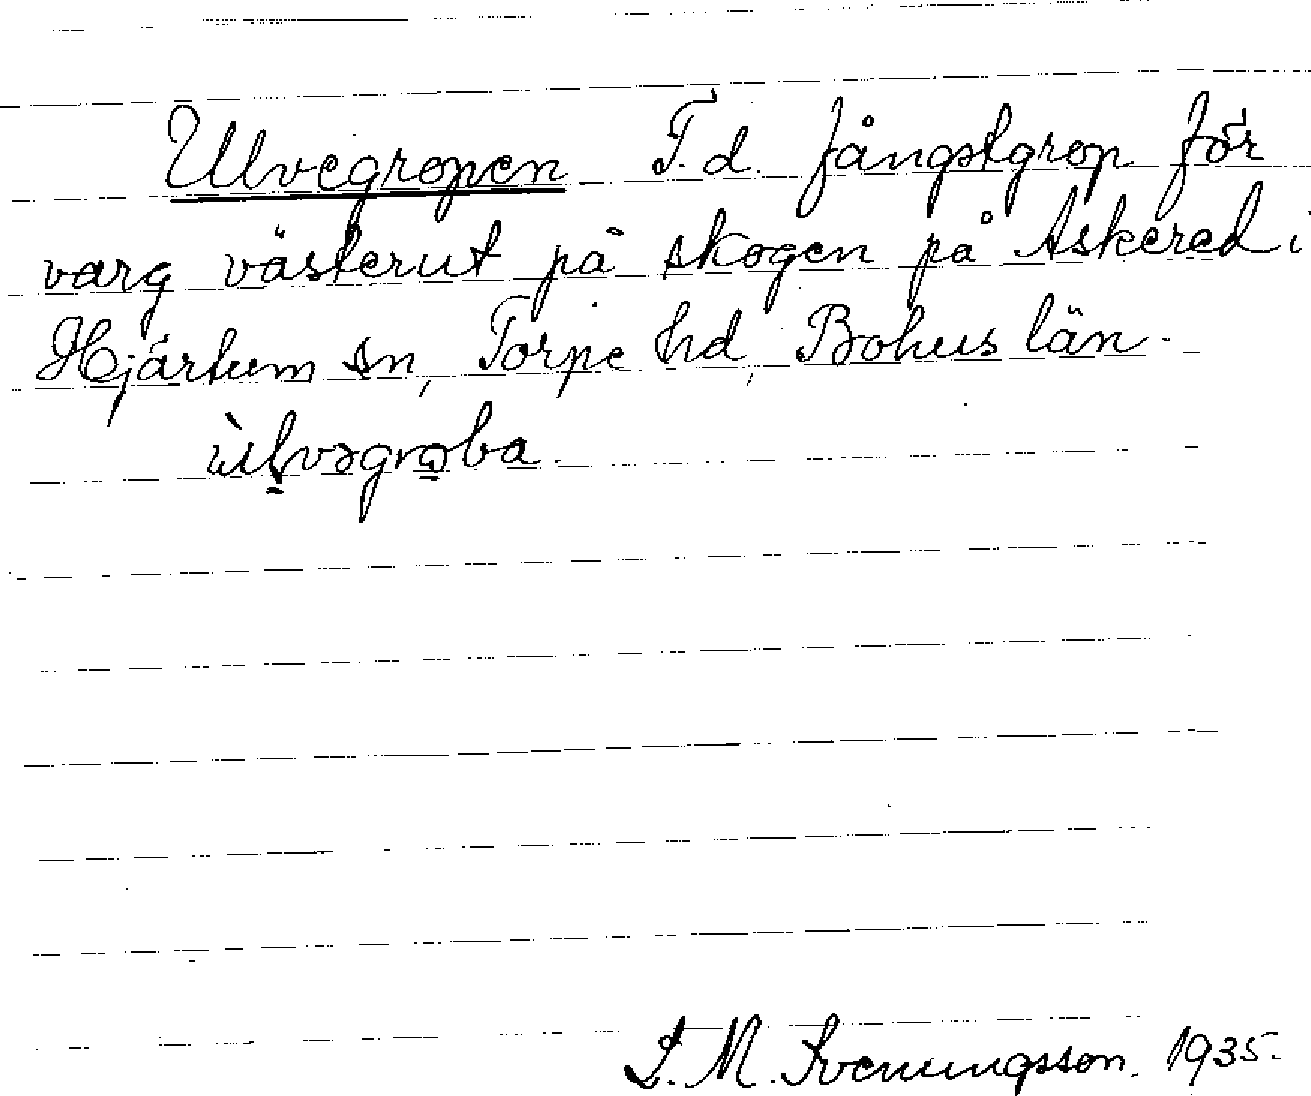 Ulvegropen F.d. fångstgrop för
varg västerut på skogen på Askered i
Hjärtum sn, Torpe hd, Bohus län.
ùl̠vəgrɷ̠ba.
L. M. Svenungsson. 1935.